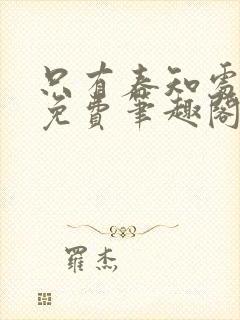 只有春知处
免费笔趣阁
羅杰